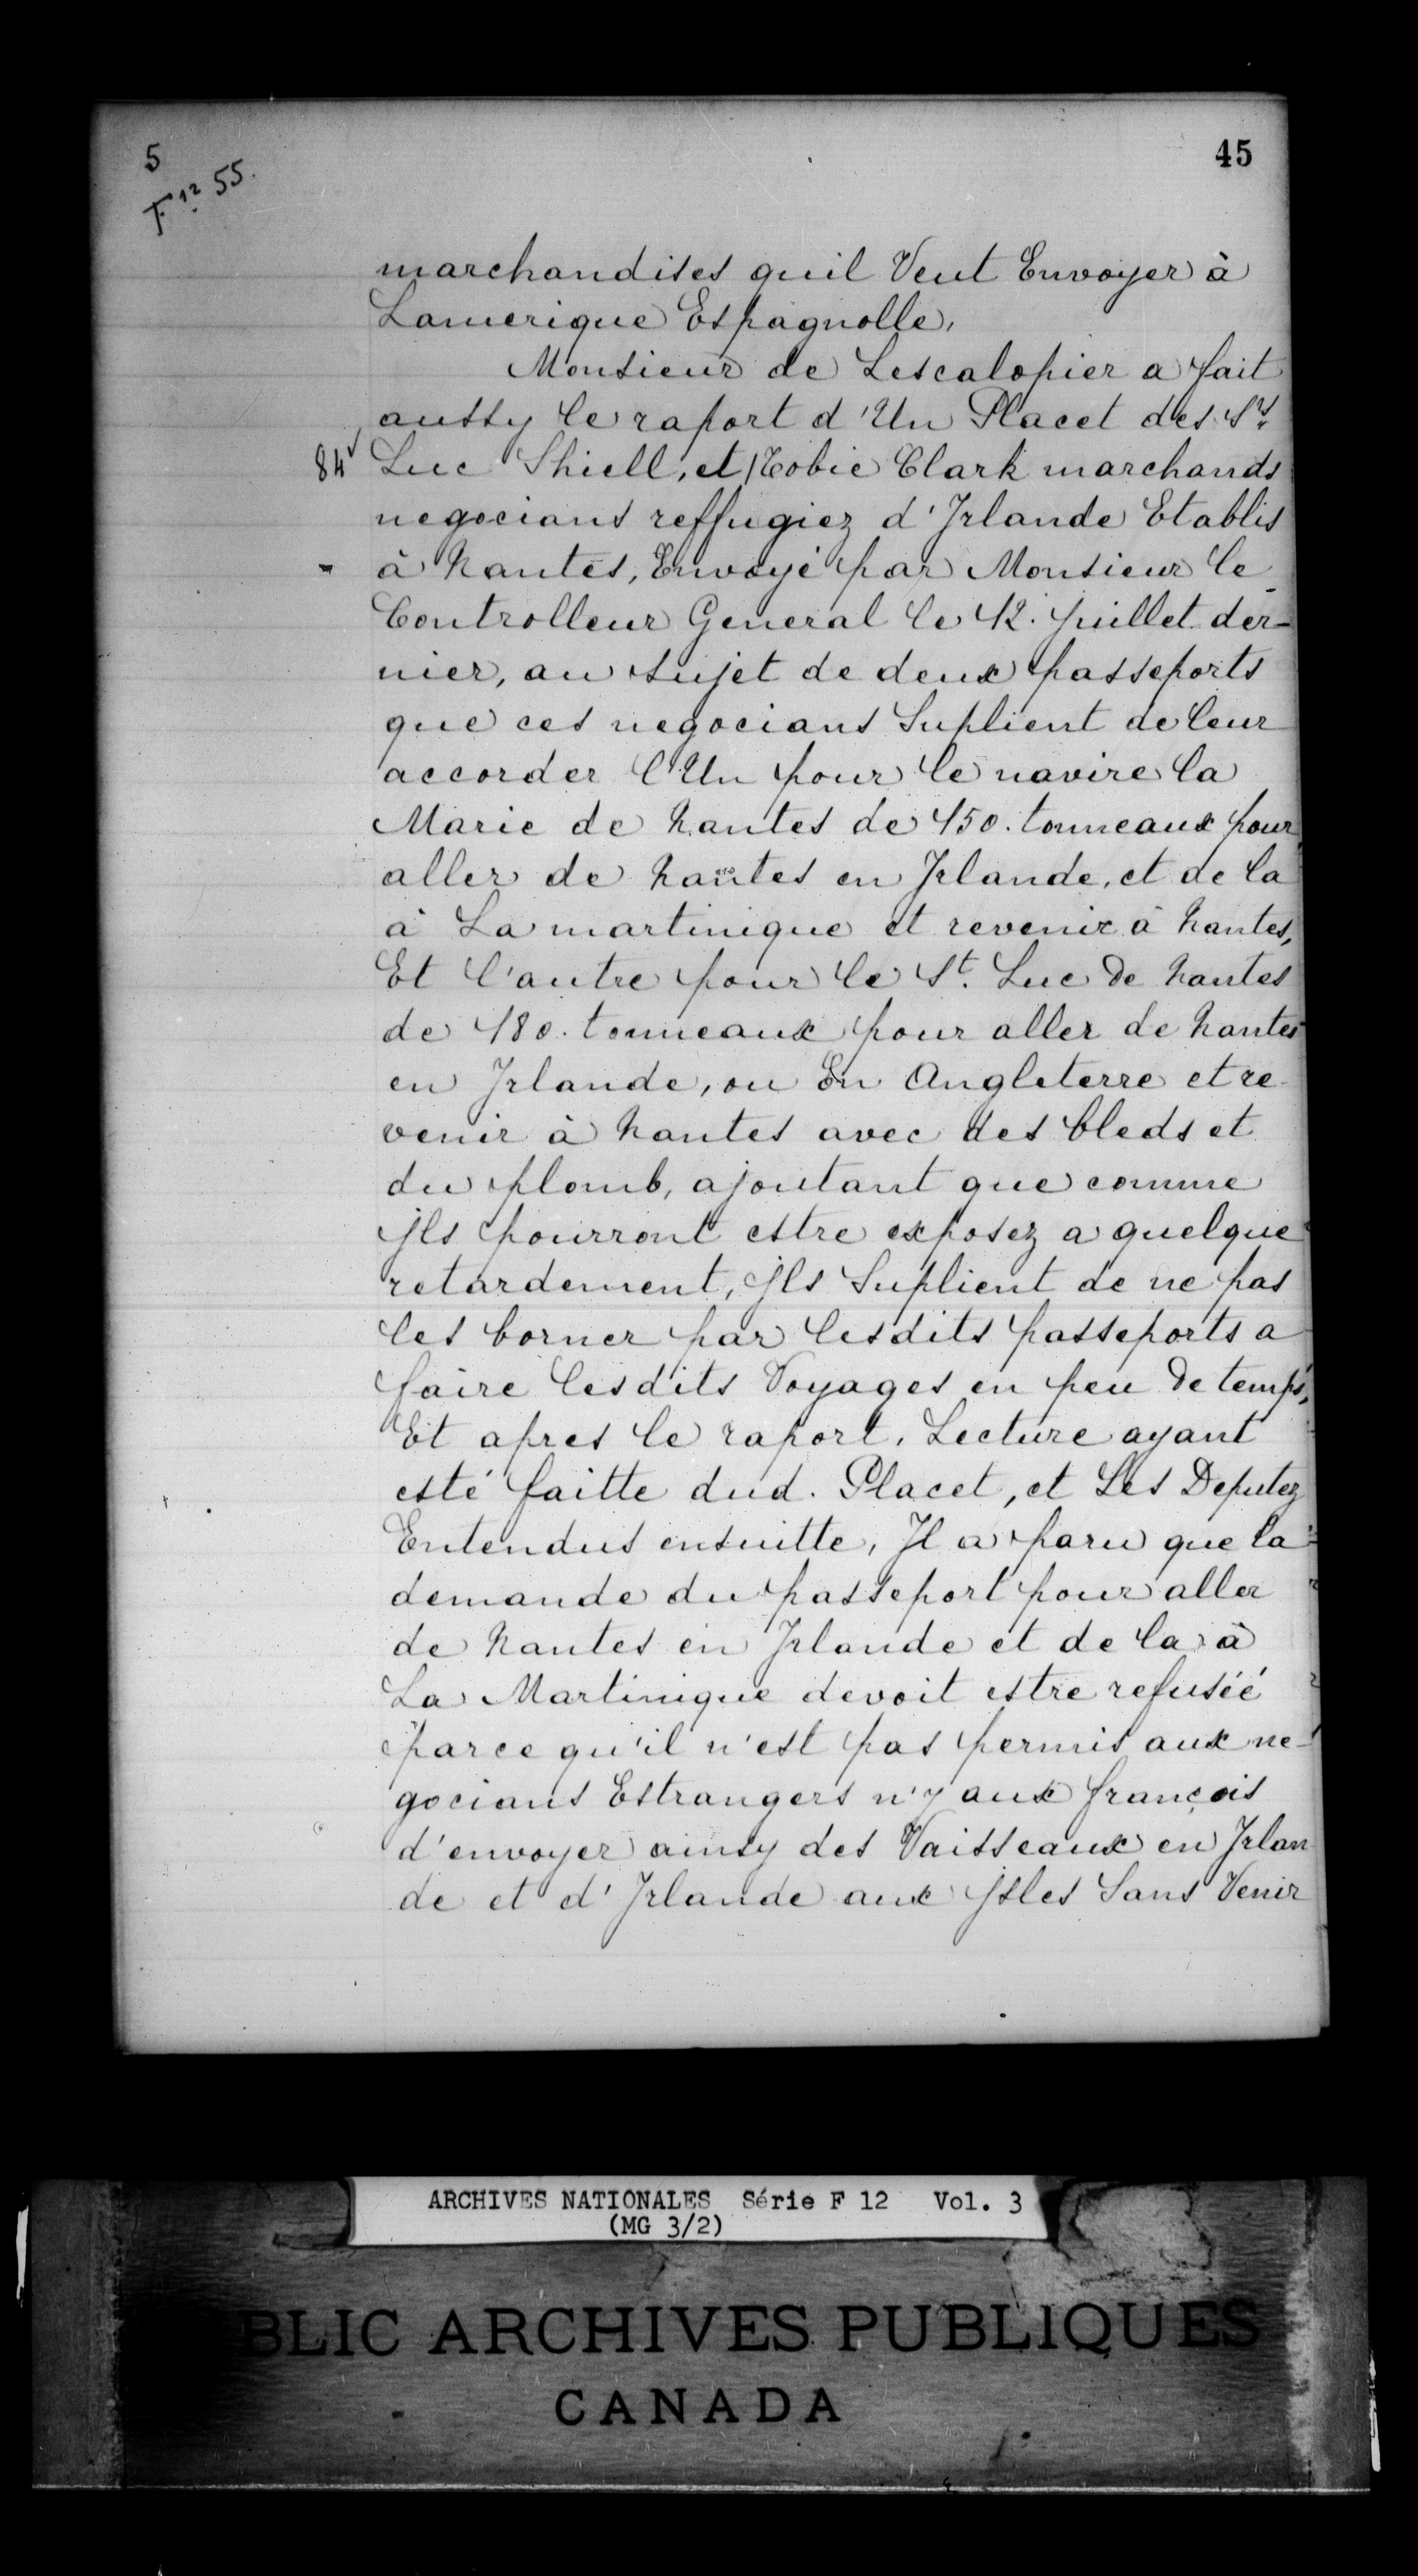 5
F 12 55.
45
marchandises qu'il Veut Envoyer à
Lamerique Espagnolle,
Monsieur de Lescalopier a fait
aussy le raport d'Un Placet des Srs
84v Luc Shiell, et | Tobie Clark marchands
negocians reffugiez d'Irlande Etablis
à Nantes, Envoyé par Monsieur le
Controlleur General le 12. Juillet der-
nier, au sujet de deux passeports
que ces negocians Suplient de leur
accorder l'Un pour le navire la
Marie de Nantes de 150. tonneaux pour
aller de Nantes en Irlande, et de la
à La martinique et revenir à Nantes,
Et l'autre pour le St. Luc de Nantes
de 180. tonneaux pour aller de Nantes
en Irlande, ou En Angleterre et re-
venir à Nantes avec des bleds et
du plomb, ajoutant que comme
Ils pourront estre exposez a quelque
retardement, Ils Suplient de ne pas
les borner par lesdits passeports a
faire lesdits Voyages en peu de temps,
Et apres le raport, Lecture ayant
esté faitte dud. Placet, et Les Deputez
Entendus ensuitte, Il a paru que la
demande du passeport pour aller
de Nantes en Irlande et de la à
La Martinique devoit estre refusée
parce qu'il n'est pas permis aux ne-
gocians Estrangers n'y aux françois
d'envoyer ainsy des Vaisseaux en Irlan
de et d'Irlande aux Isles Sans Venir
ARCHIVES NATIONALES Série F 12 Vol. 3
(MG 3/2)
BLIC ARCHIVES PUBLIQUES
CANADA